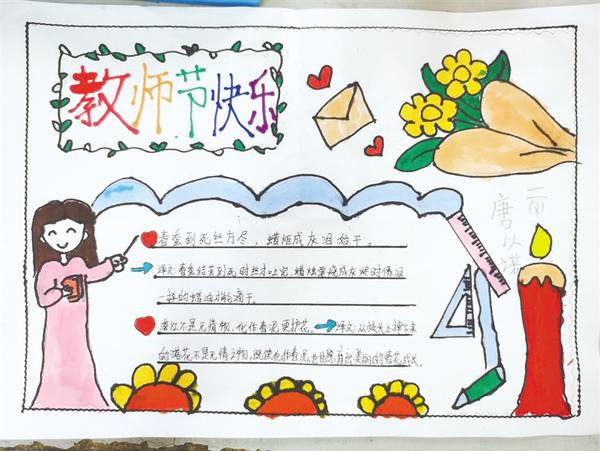 教师节快乐
春蚕到死丝方尽，蜡炬成灰泪始干。
译文:春蚕结茧到死时丝才吐完，蜡烛要烧成灰烬时像泪
一样的蜡油才能滴干。
落红不是无情物，化作春泥更护花。译文:从枝头上掉下来
的落花不是无情之物，既使化作春泥也甘愿培育美丽的春花成长。
二
唐以